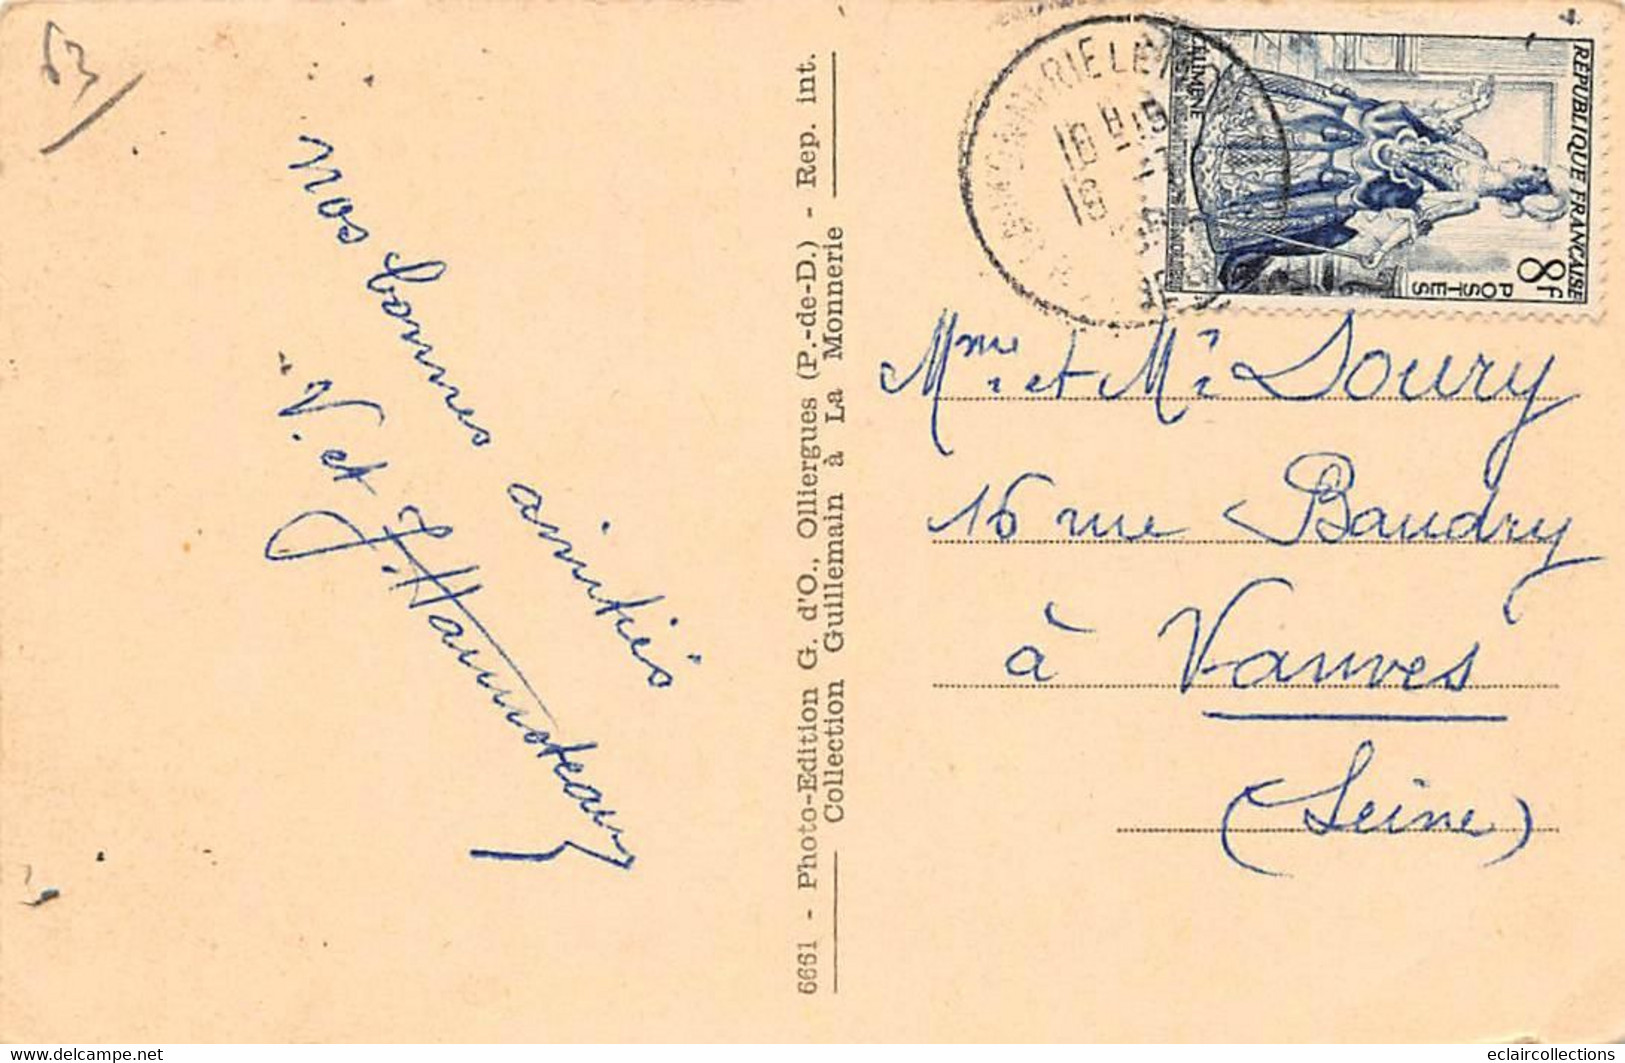 63
Nos bonnes amitiés
V. et J. Hannoteaux
6661 - Photo-Edition G. d'O., Olliergues (P.-de-D.) - Rep. int.
Collection Guillemain à La Monnerie
REPUBLIQUE FRANÇAISE
8F
POSTES
CELIMENE
Mme et Mr Soury
16 rue Baudry
à Vanves
(Seine)
delcampe.net
eclaircollections